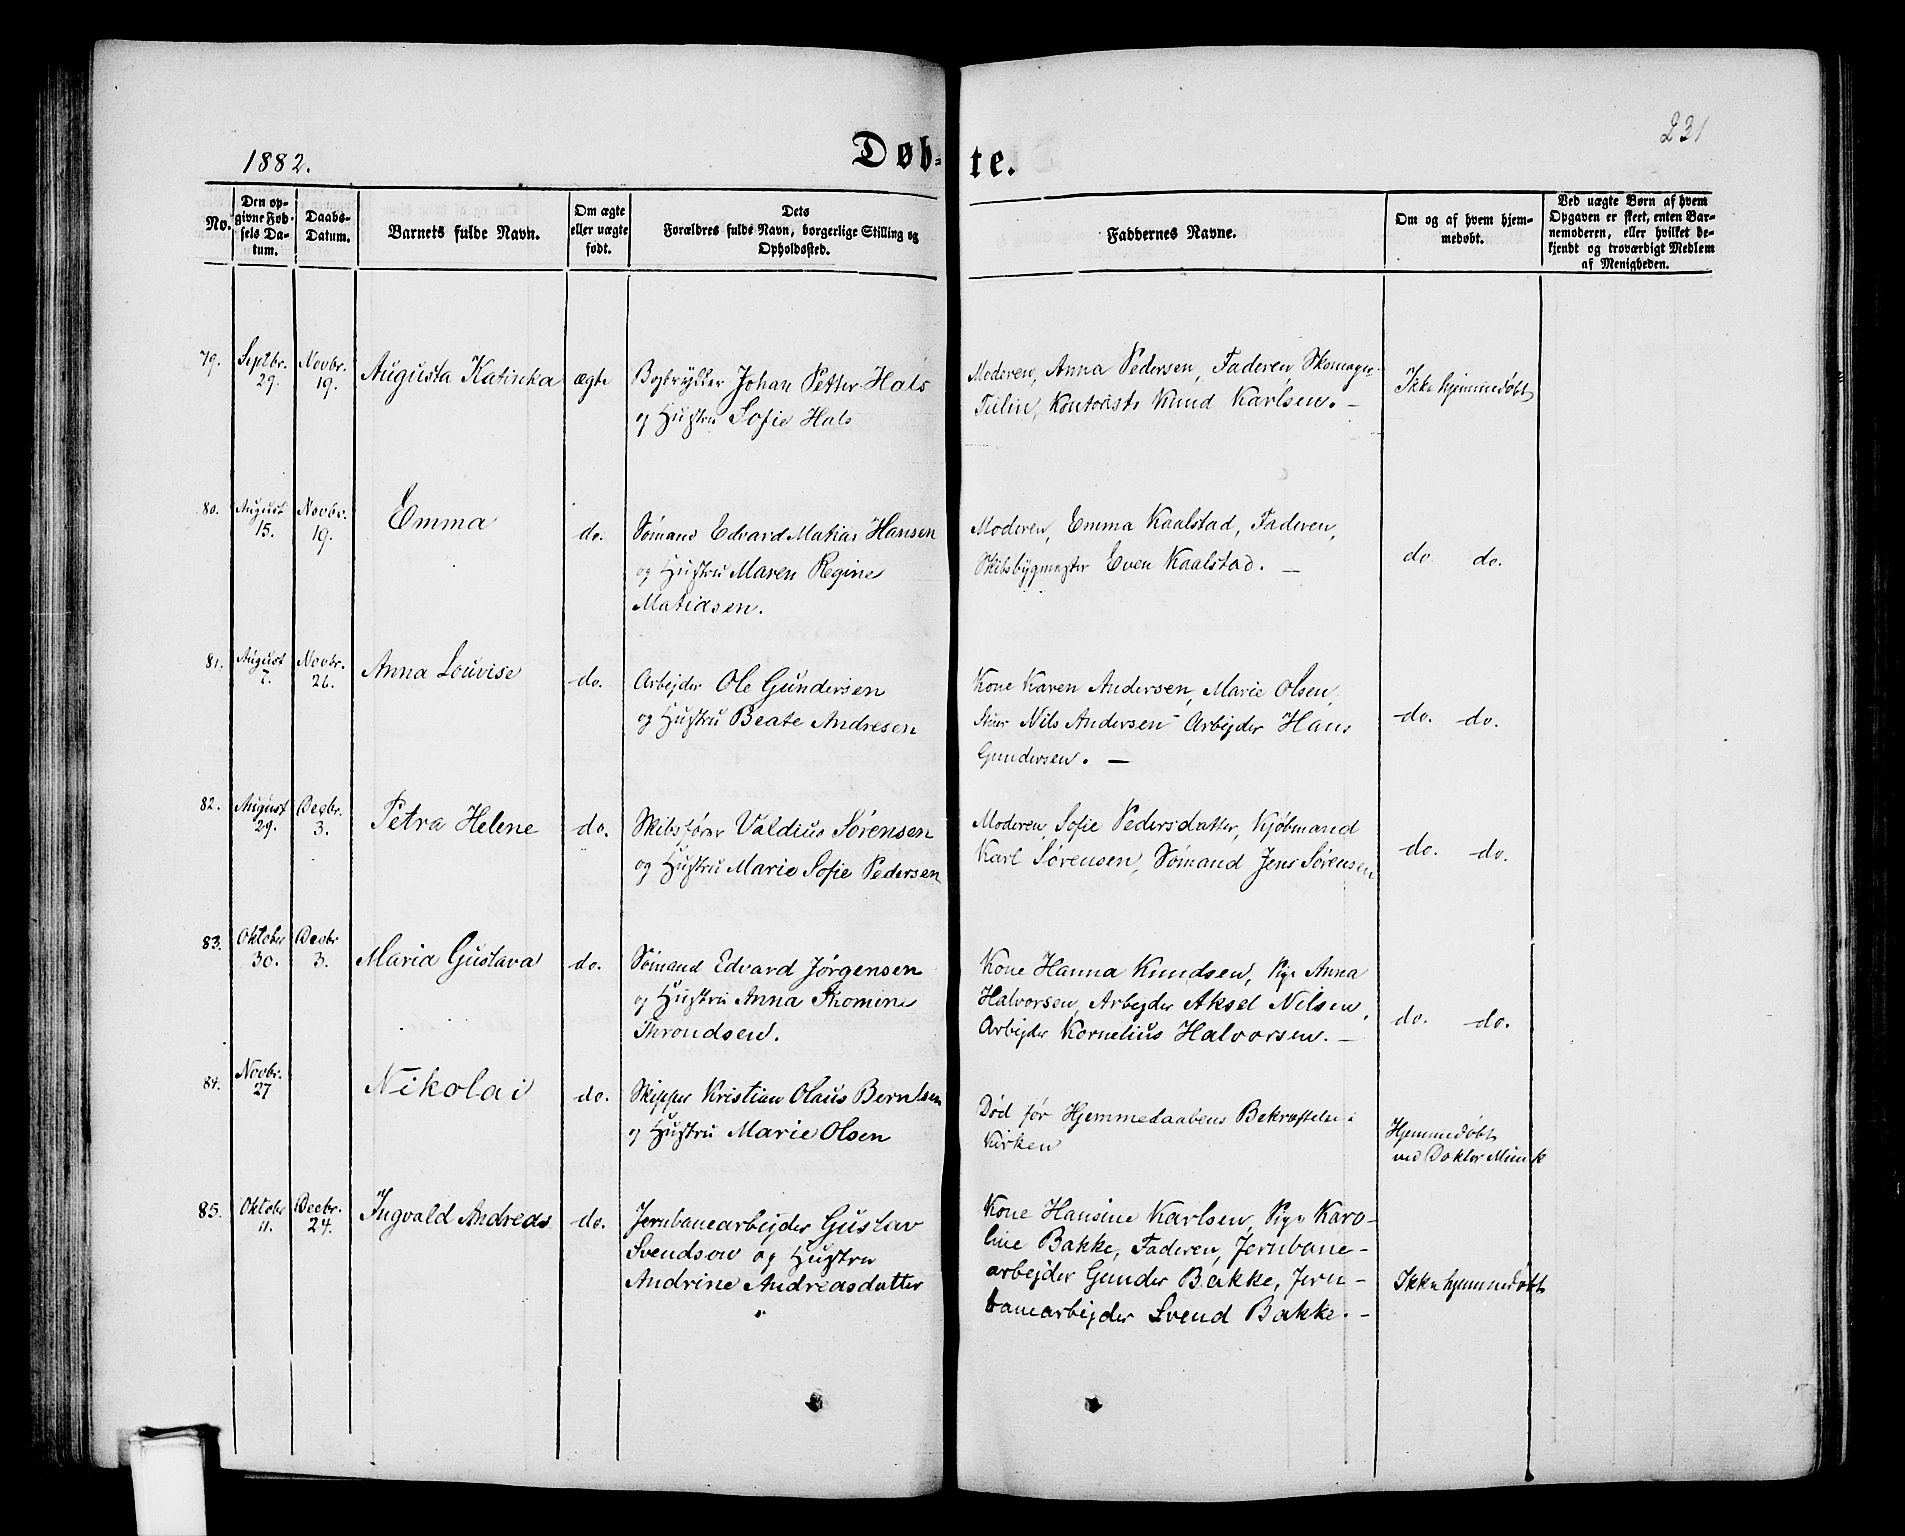 231
1882.
Døb-te.
No.
Den op-
givne Fød-
sels Da-
tum.
Daabs-
Datum.
Barnets fulde Navn.
Om ægte
eller uægte
født.
Dets
Forældres fulde Navn, borgerlige Stilling og
Opholdssted.
Faddernes Navne.
Om og af hvem hjem-
medøbt.
Ved uægte Børn af hvem
Opgaven er skeet, enten Bar-
nemoderen, eller hvilket be-
kjendt og troværdigt Medlem
af Menigheden.
79.
Septbr.
29.
Novbr.
19.
Augusta Katinka
ægte
Bogtrykker Johan Petter Hals
og Hustru Sofie Hals
Moderen, Anna Pedersen, Faderen, Skomager
Tulin, Kontorist Knud Karlsen. —
Ikke hjemmedøbt
80.
August
15.
Novbr.
19.
Emma
do.
Sømand Edvard Matias Hansen
og Hustru Maren Regine
Matidsen.
Moderen, Emma Kaalstad, Faderen,
Skibsbygmester Even Kaalstad. —
do. do.
81.
August
7.
Novbr.
26.
Anna Louvise
do.
Arbejder Ole Gundersen
og Hustru Beate Andresen
Kone Karen Andersen, Marie Olsen,
Nils Andersen Arbejder Hans
Gundersen. —
do. do.
82.
August
29.
Decbr.
3.
Petra Helene
do.
Skibsfører Valdius Sørensen
og Hustru Marie Sofie Pedersen
Moderen, Sofie Pedersdatter, Kjøbmand
Karl Sørensen, Sømand Jens Sørensen
do. do.
83.
Oktober
30.
Decbr
3.
Maria Gustava
do.
Sømand Edvard Jørgensen
og Hustru Anna Thomine
Throndsen.
Kone Hanna Knudsen, Pige Anna
Halvorsen, Arbejder Aksel Nilsen,
Arbejder Kornelius Halvorsen. —
do. do.
84.
Novbr.
27
Nikolai
do.
Skipper Kristian Olaus Berntsen
og Hustru Marie Olsen
Død før Hjemmedaabens Bekræftelse i
Kirken
Hjemmedøbt
ved Doktor Munk
85.
Oktober
11.
Decbr.
24.
Ingvald Andreas
do.
Jernbanearbejder Gustav
Svendsen og Hustru
Andrine Andreasdatter
Kone Hansine Karlsen, Pige Karo-
line Bakke, Faderen, Jernbane-
arbejder Gunder Bakke, Jern-
banearbejder Svend Bakke. —
Ikke hjemmedøbt